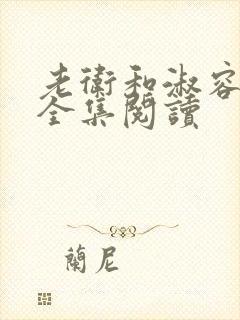 老衛和淑容
全集閱讀
蘭尼